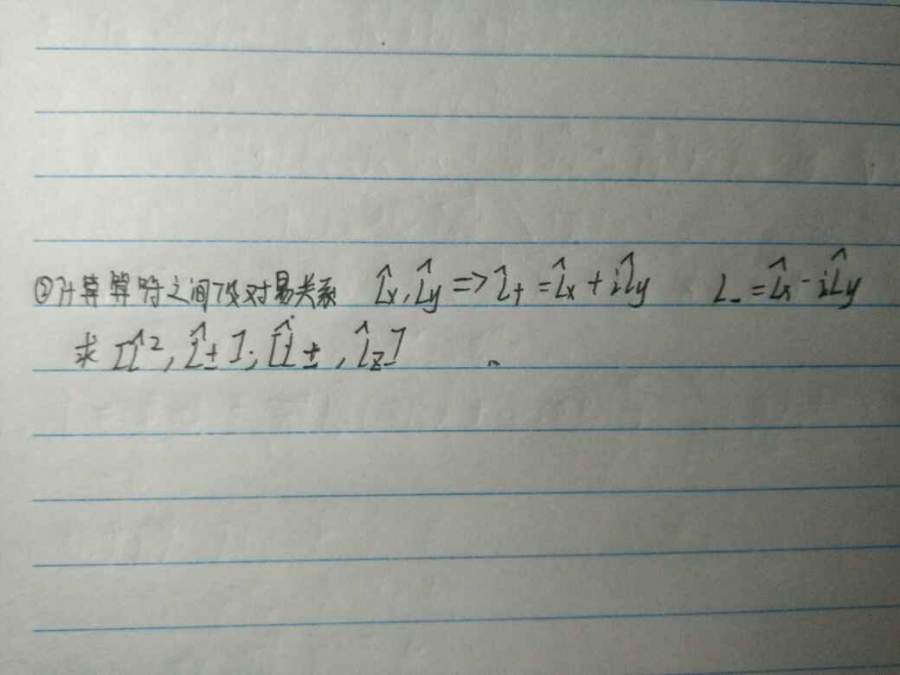 ②计算算符之间的对易关系 L̂x, L̂y => L̂+ = L̂x + iL̂y L_ = L̂x - iL̂y
求 [L̂², L̂±]; [L̂±, L̂z]